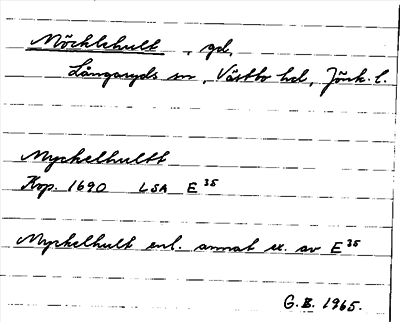 Möcklehult, gd,
Långaryds sn, Västbo hd, Jönk. l.
Myckelhultt
Kop. 1690 LSA E 35
Myckelhult enl. annat ex. av E 35
G.B. 1965.